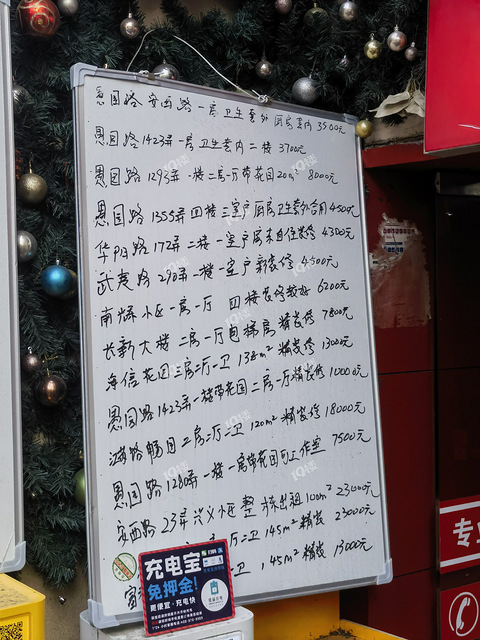 愚园路安西路一房卫生套外厨房套内 3500元
愚园路1423弄一房卫生套内二楼 3700元
愚园路1293弄一楼二房一厅带花园20m² 8000元
愚园路1355弄四楼三室户厨房卫生套外合用4500元
华阳路172弄二楼一室户 装修 4300元
武夷路290弄一楼一室户新装修 4500元
小区一房一厅 四楼装修较好 6200元
长新大楼二房一厅电梯房精装修 7800元
海信花园三房二厅一卫138m²精装修 13000元
愚园路1423弄一楼带花园二房一厅精装修 10000元
二房二厅二卫120m²精装修 18000元
愚园路1280弄一楼一房带花园可工作室 7500元
安西路23弄兴义小区整栋出租100m² 23000元
厅二卫145m²精装 23000元
卫 145m²精装 13000元
充电宝
免押金!
更便宜·充电快
专